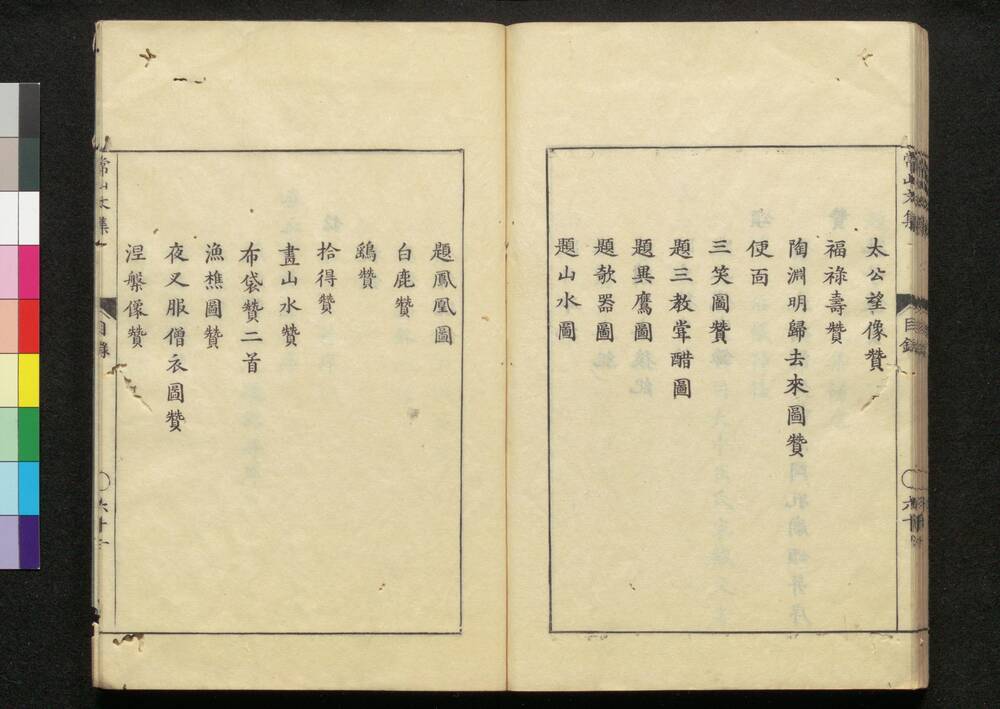 太公望像贊
福祿壽贊
陶淵明歸去來圖贊
便面
三笑圖贊
題三教甞醋圖
題異鷹圖
題欹器圖
題山水圖
常山文集
目錄
六十
題鳳凰圖
白鹿贊
鷄贊
拾得贊
畫山水贊
布袋贊二首
漁樵圖贊
夜叉服僧衣圖贊
涅槃像贊
常山文集
目錄
六十一